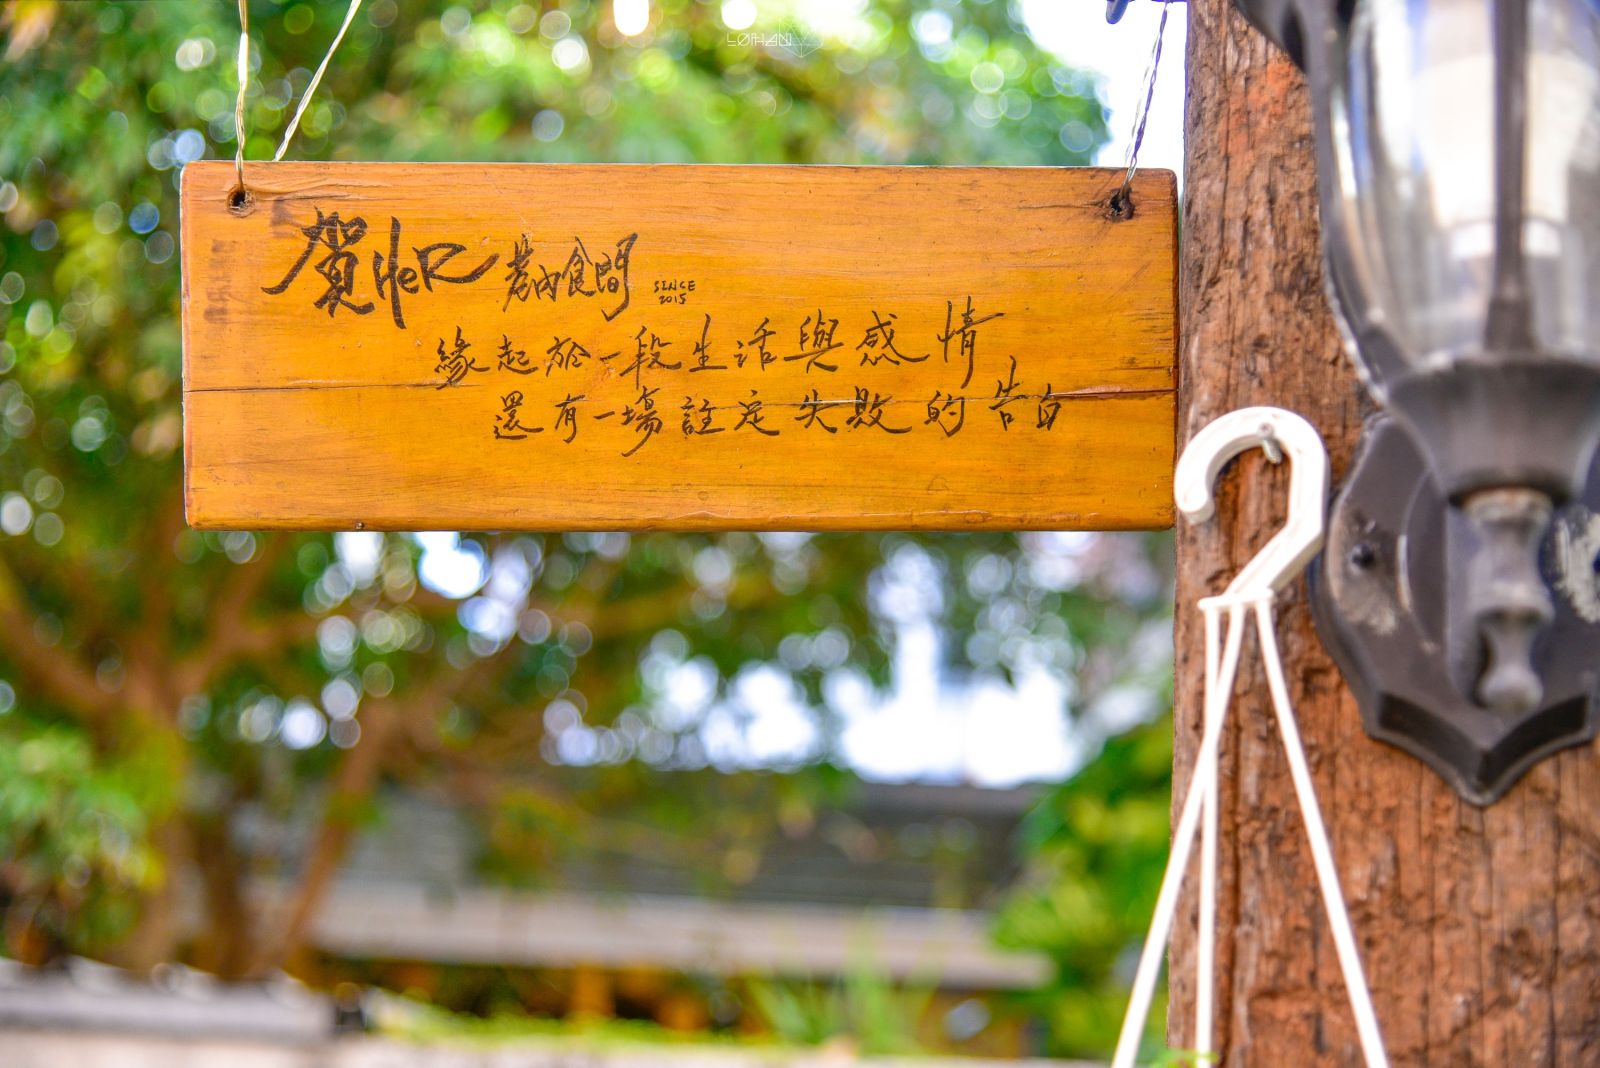 LOHAN
賀HeR 老內食間 SINCE 2015
緣起於一段生活與感情
還有一場註定失敗的告白